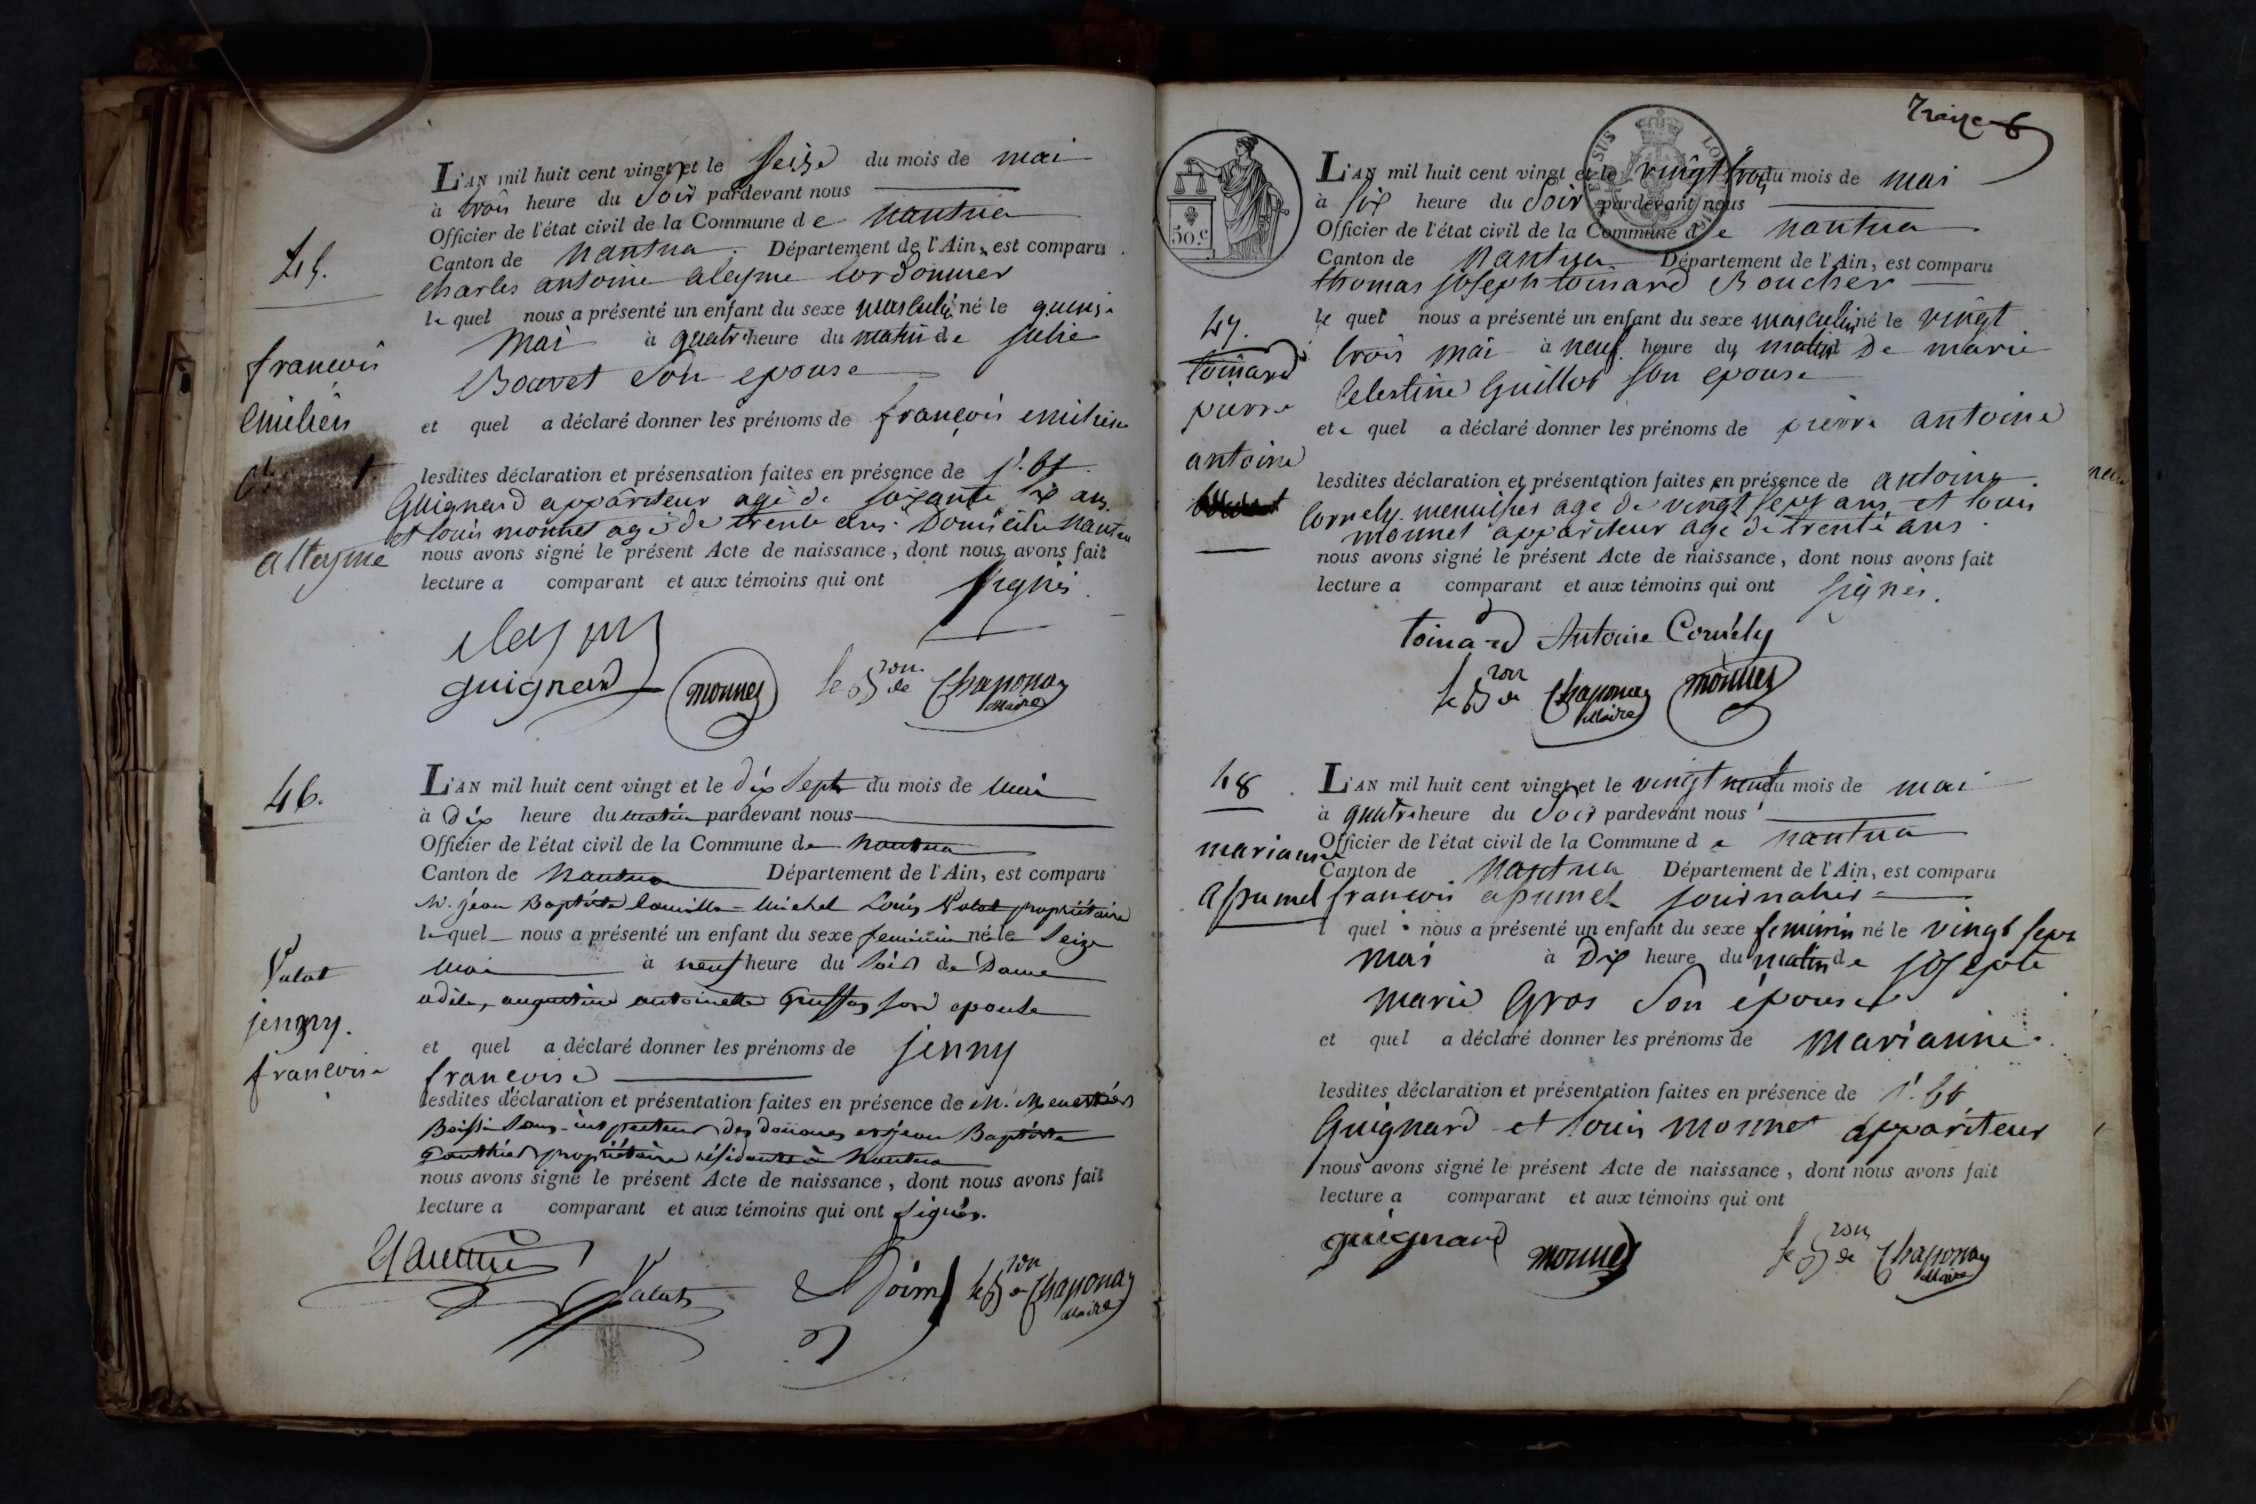 45.
françois
emilien
alleyme
L'AN mil huit cent vingt et le seize du mois de mai
à trois heure du soir pardevant nous
Officier de l'état civil de la Commune de nantua
Canton de nantua. Département de l'Ain, est comparu
charles antoine aleyme cordonnier
le quel nous a présenté un enfant du sexe masculin né le quinze
mai à quatre heure du matin de julie
Bouvet son epouse
et quel a déclaré donner les prénoms de françois emilien
lesdites déclaration et présensation faites en présence de j.n bt
Guignard appariteur agé de soixante six ans
et louis monnet agé de trente ans. Domicilié nantua
nous avons signé le présent Acte de naissance, dont nous avons fait
lecture a comparant et aux témoins qui ont signés.
aleyme
guignard monnet le Bon de Chaponay
Maire
46.
Valat
jenny.
françoise
L'AN mil huit cent vingt et le dix sept du mois de mai
à dix heure du matin pardevant nous
Officier de l'état civil de la Commune de Nantua
Canton de Nantua Département de l'Ain, est comparu
M. jean Baptiste Camille Michel Louis Valat propriétaire
le quel nous a présenté un enfant du sexe feminin né le seize
mai à neuf heure du soir de Dame
adèle, augustine antoinette son epouse
et quel a déclaré donner les prénoms de jenny
francoise
lesdites déclaration et présentation faites en présence de M.
inspecteur des douanes et jean Baptiste
Gauthier propriétaire résidants à Nantua
nous avons signé le présent Acte de naissance, dont nous avons fait
lecture a comparant et aux témoins qui ont signés.
Valat le Bon de Chaponay
Maire
Treize
50.c
47.
toinard
pierre
antoine
L'AN mil huit cent vingt et le vingt trois du mois de mai
à six heure du soir pardevant nous
Officier de l'état civil de la Commune de nantua
Canton de nantua Département de l'Ain, est comparu
thomas joseph toinard Boucher
le quel nous a présenté un enfant du sexe masculin né le vingt
trois mai à neuf heure du matin de marie
Celestine Guillot son epouse
et e quel a déclaré donner les prénoms de pierre antoine
lesdites déclaration et présentation faites en présence de antoine
Cornely menuisier agé de vingt sept ans et louis
monnet appariteur agé de trente ans
nous avons signé le présent Acte de naissance, dont nous avons fait
lecture a comparant et aux témoins qui ont signés.
toinard Antoine Cornély
le Bon de Chaponay monnet
Maire
48
marianne
apumel
L'AN mil huit cent vingt et le vingt neuf du mois de mai
à quatre heure du soir pardevant nous
Officier de l'état civil de la Commune de nantua
Canton de nantua Département de l'Ain, est comparu
francois apumel journalier
l quel nous a présenté un enfant du sexe feminin né le vingt sept
mai à Dix heure du matin de josephte
marie Gros son épouse
et quel a déclaré donner les prénoms de marianne.
lesdites déclaration et présentation faites en présence de j.n bt
Guignard et louis monnet appariteur
nous avons signé le présent Acte de naissance, dont nous avons fait
lecture a comparant et aux témoins qui ont
guignard monnet le Bon de Chaponay
Maire